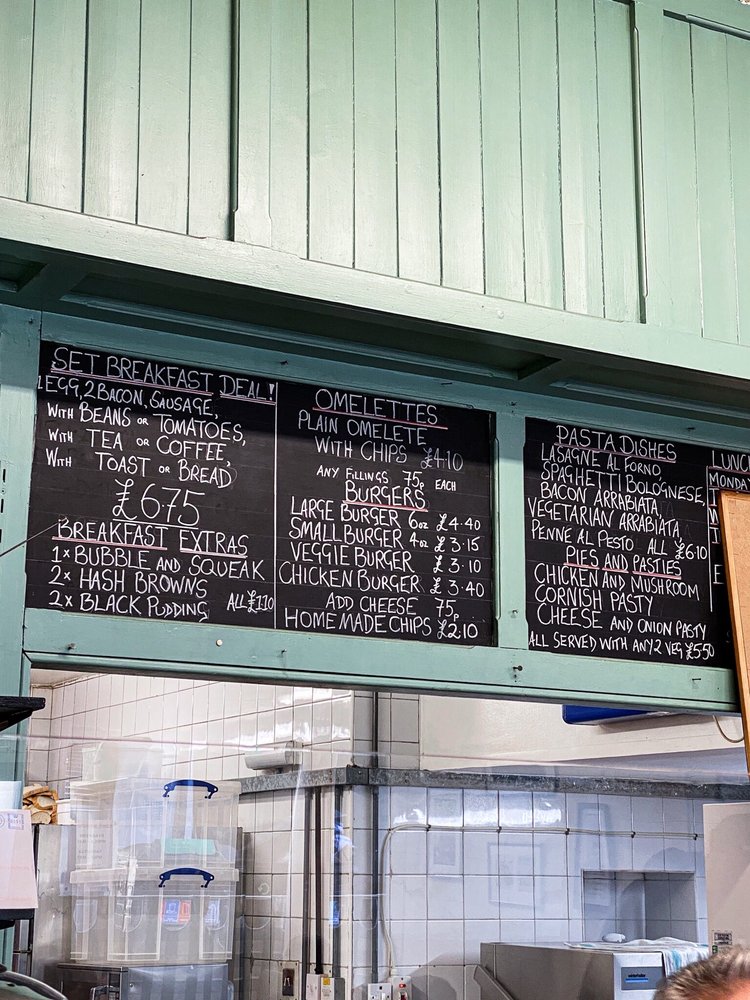 SET BREAKFAST DEAL!
1 EGG, 2 BACON, SAUSAGE,
WITH BEANS OR TOMATOES,
WITH TEA OR COFFEE,
WITH TOAST OR BREAD
£6.75
BREAKFAST EXTRAS
1x BUBBLE AND SQUEAK
2x HASH BROWNS
2x BLACK PUDDING ALL £1.10
OMELETTES
PLAIN OMELETE
WITH CHIPS £4.10
ANY FILLINGS 75p EACH
BURGERS
LARGE BURGER 6oz £4.40
SMALL BURGER 4oz £3.15
VEGGIE BURGER £3.10
CHICKEN BURGER £3.40
ADD CHEESE 75p
HOMEMADE CHIPS £2.10
PASTA DISHES
LASAGNE AL FORNO,
SPAGHETTI BOLOGNESE,
BACON ARRABIATA,
VEGETARIAN ARRABIATA,
PENNE AL PESTO ALL £6.10
PIES AND PASTIES
CHICKEN AND MUSHROOM
CORNISH PASTY
CHEESE AND ONION PASTY
ALL SERVED WITH ANY 2 VEG £5.50
LUNC
MONDAY